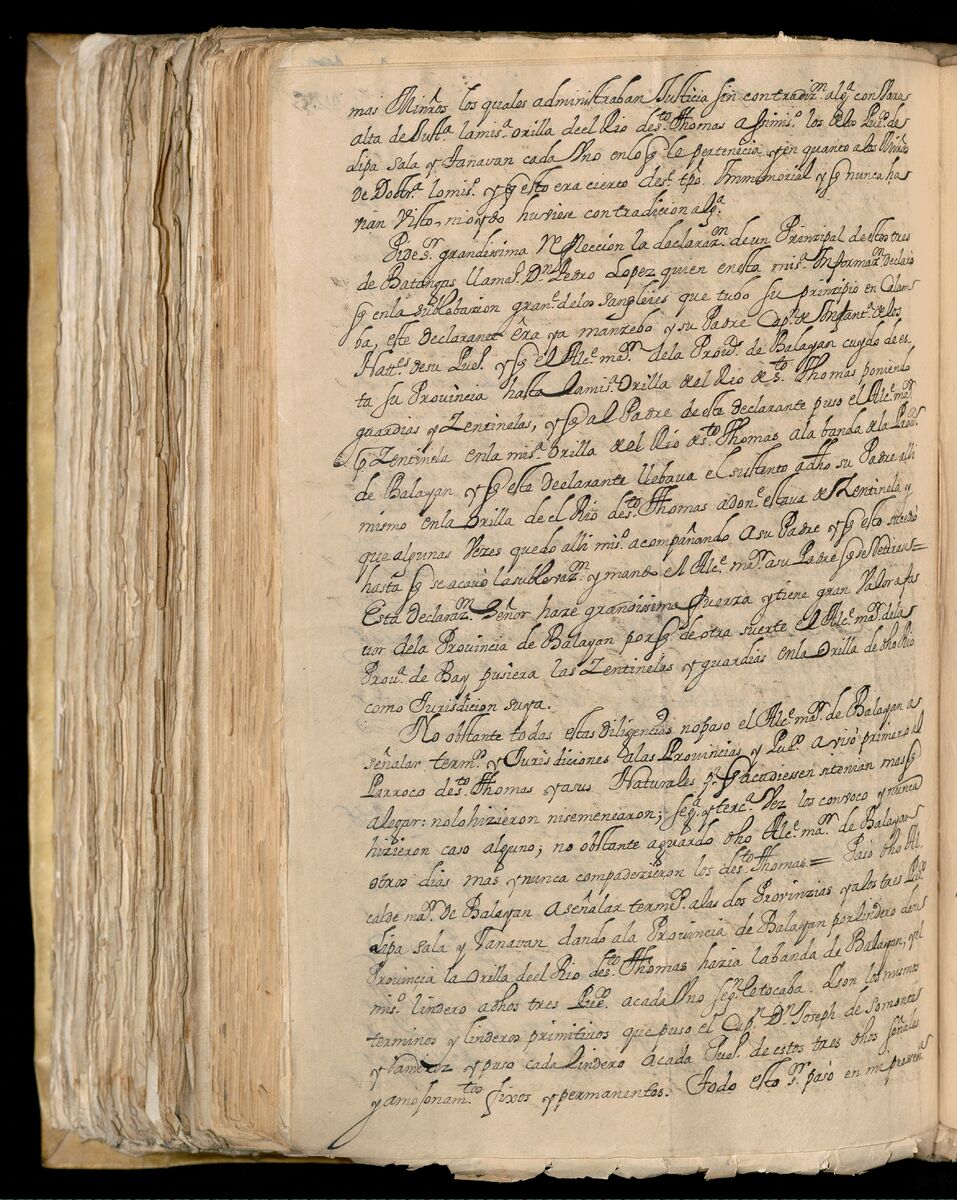 mas Minros los quales administraban Justicia sin contradizn. algª con Varas
alta de Justª. lamisª orilla deel Rio desto. Thomas asimisº. los delos Puºs. de
Lipa Sala y Tanavan cada Vno enlo q le pertenecia y en quanto alos Minros
de Doctrª lo misº. y q esto era cierto desº. tpo. Immemorial y q nunca ha
vian Visto, nioydo huviese contradicion algª.
Pide sr. grandissima Refleccion la declarazn. de un Prinzipal de estos tres
de Batangas llamaº. Dn. Pedro Lopez quien enesta misª. Informazn. Declaró
q enla sublebazion grane. delos sangleies que tubo su principio en Calam
ba, este declarante êra ya manzebo y su Padre Capn. de Infantª. de los
Natles. desu Pueº. y q el Alce. mar. dela Prouª. de Balayan cuydo de es
ta su Prouincia hasta lamisª. Orilla del Rio de sto. Thomas poniendo
guardias y Zentinelas, y q al Padre de este declarante puso el Alce. mar.
pr Zentinela enla misª. Orilla del Rio de sto. Thomas ala banda dela Prouª.
de Balayan y q este Declarante llebava el sustento adho su Padre alli
mismo enla Orilla de el Rio desto. Thomas adone. estava de Zentinela y
que algunas Vezes quedo alli misº. acompañando a su Padre y q esto
hasta q se acavó la sublevazn. y mando el Alce. mar. a su Padre q se Retirase=
Esta Declarazn. Señor haze grandissima fuerza y tiene gran Valor a fa
uor dela Prouincia de Balayan por q de otra suerte el Alce. mar. dela
Prouª. de Bay pusiera las Zentinelas y guardias enla Orilla de dho Rio
como Jurisdicion suya.
No obstante todas estas diligencias no paso el Alce. mar. de Balayan a
señalar termos. y Jurisdiciones alas Prouincias y Pueºs. avisó primero al
Parroco desto. Thomas yasus Naturales pª. q acudiessen si tenian mas q
alegar: nolo hizieron nisemenearon; segª. y tercª. Vez los convoco y nunca
hizieron caso alguno; no obstante aguardo dho Alce. mar. de Balayan
otros dias mas y nunca compadezieron los desto. Thomas= Pasó dho Al
calde mar. de Balayan a señalar termos. alas dos Provinzias y alos tres Pueºs
Lipa Sala y Tanavan dando ala Prouincia de Balayan por lindero de su
Prouincia la Orilla deel Rio desto. Thomas hazia la banda de Balayan, y el
misº. lindero adhos tres Pueºs. acada Vno segn. le tocaba. Y son los mismos
terminos y linderos primitivos que puso el Capn. Dn. Joseph de Somontes
y Ramirez y puso cada lindero a cada Pueº. de estos tres dhos señales
y amojonamtos. fixos y permanentes. Todo esto sr. pasó en mi presenª